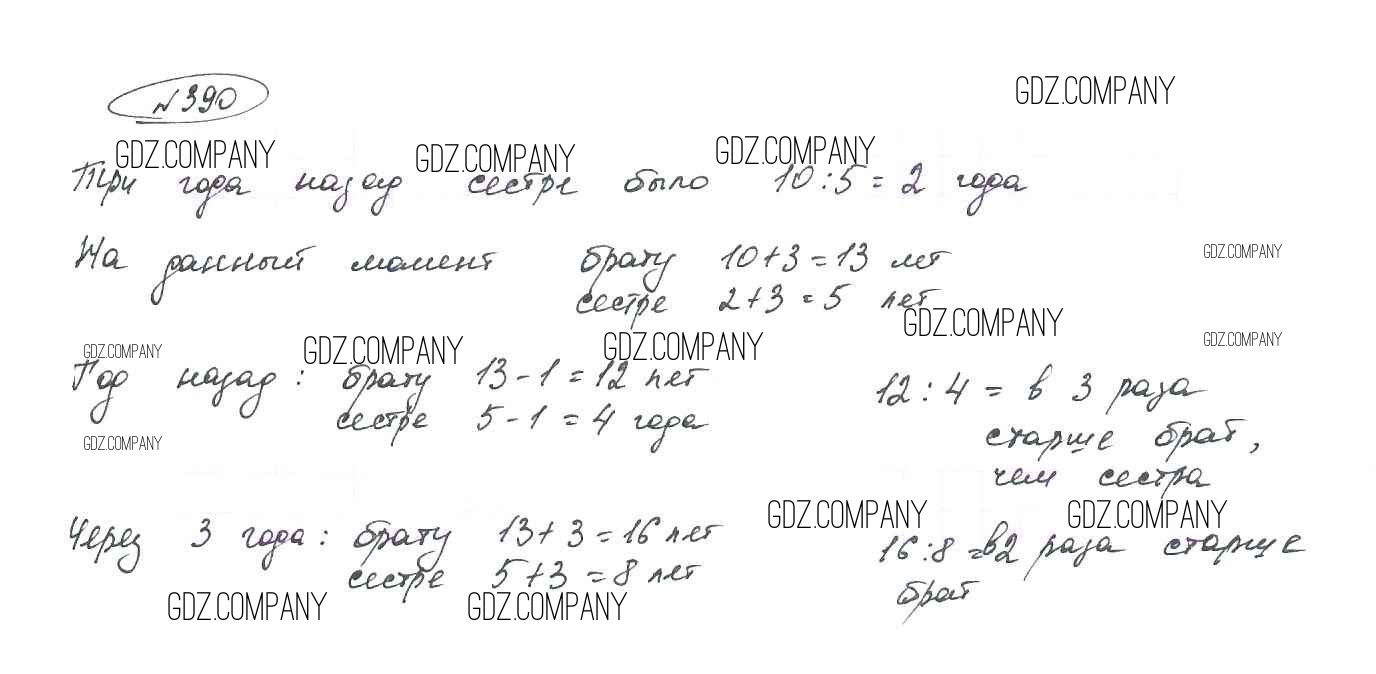 №390
GDZ.COMPANY
GDZ.COMPANY GDZ.COMPANY GDZ.COMPANY
Три года назад сестре было 10:5=2 года
На данный момент брату 10+3=13 лет
GDZ.COMPANY
сестре 2+3=5 лет
GDZ.COMPANY
GDZ.COMPANY GDZ.COMPANY GDZ.COMPANY GDZ.COMPANY
Год назад: брату 13-1=12 лет 12:4= в 3 раза
сестре 5-1=4 года старше брат,
GDZ.COMPANY
чем сестра
GDZ.COMPANY GDZ.COMPANY
Через 3 года: брату 13+3=16 лет 16:8=в2 раза старше
сестре 5+3=8 лет брат
GDZ.COMPANY GDZ.COMPANY